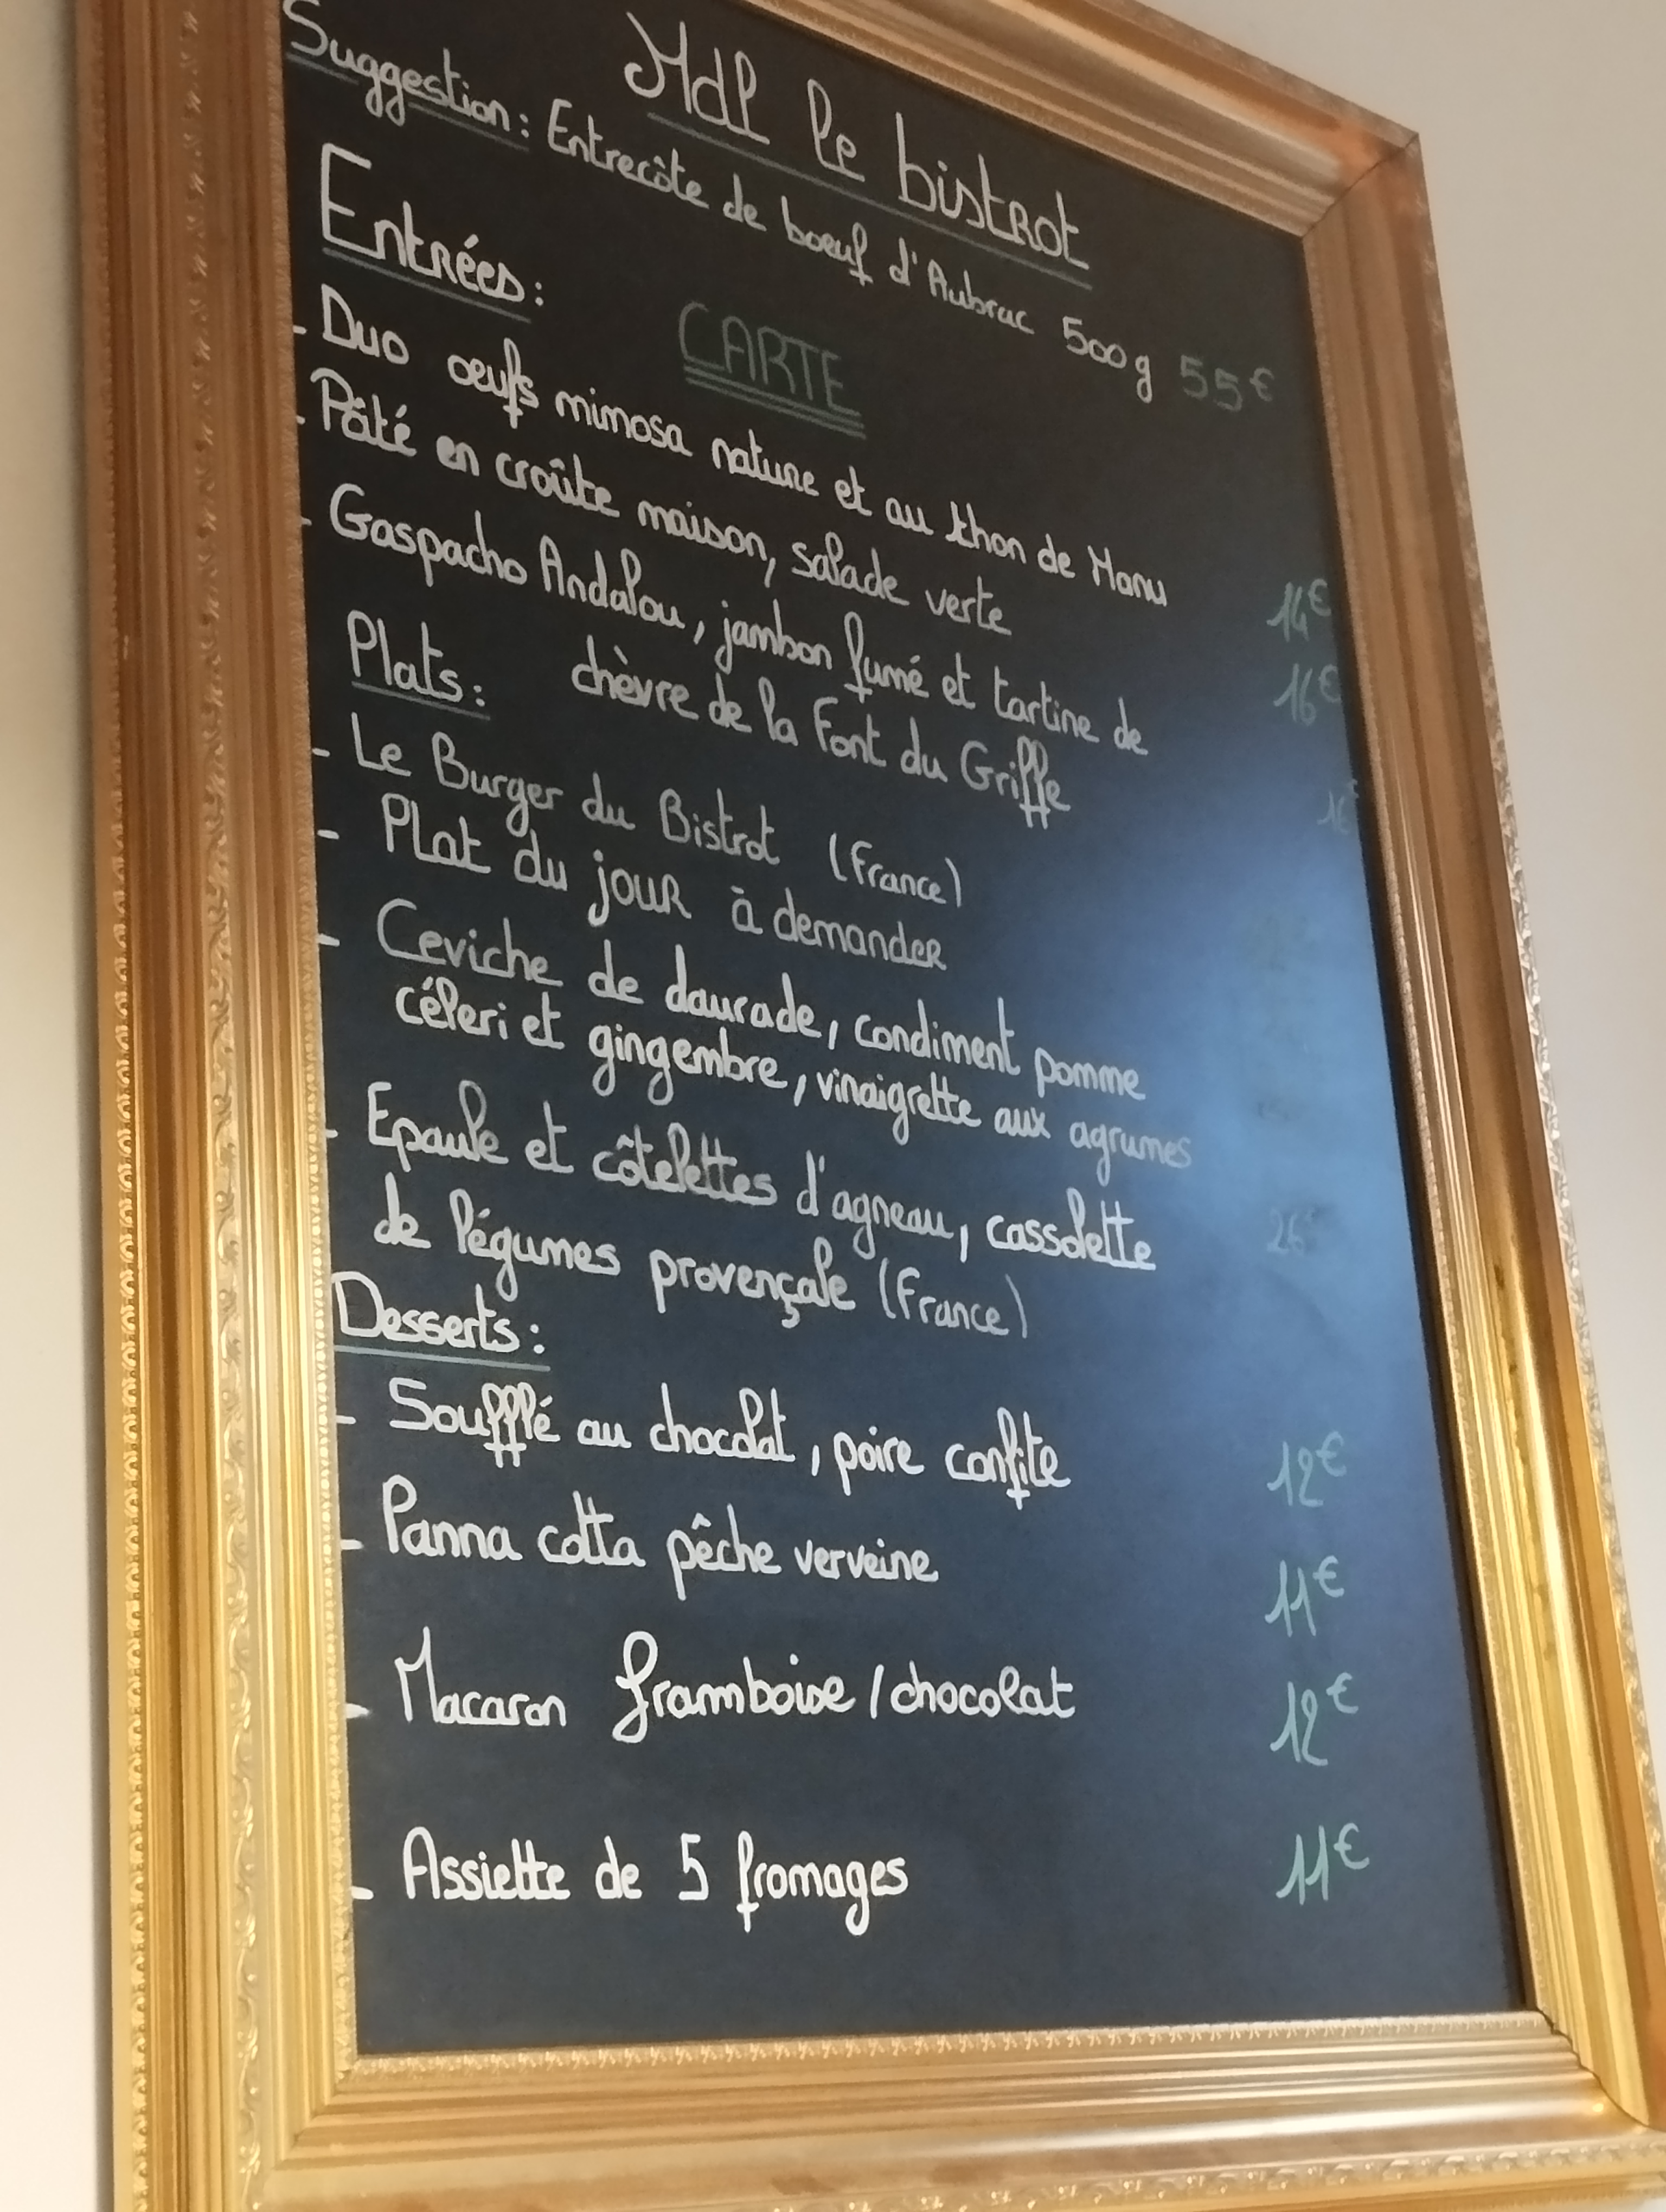 Mdl le bistrot
Suggestion: Entrecôte de boeuf d'Aubrac 500g 55€
CARTE
Entrées:
- Duo oeufs mimosa nature et au thon de Manu 14€
- Pâté en croûte maison, salade verte 16€
- Gaspacho Andalou, jambon fumé et tartine de
chèvre de la Font du Griffe
Plats:
- Le Burger du Bistrot (France)
- Plat du jour à demander
- Ceviche de daurade, condiment pomme
céleri et gingembre, vinaigrette aux agrumes
- Epaule et côtelettes d'agneau, cassolette
de légumes provençale (France)
Desserts:
- Soufflé au chocolat, poire confite 12€
- Panna cotta pêche verveine 11€
- Macaron framboise/chocolat 12€
- Assiette de 5 fromages 11€